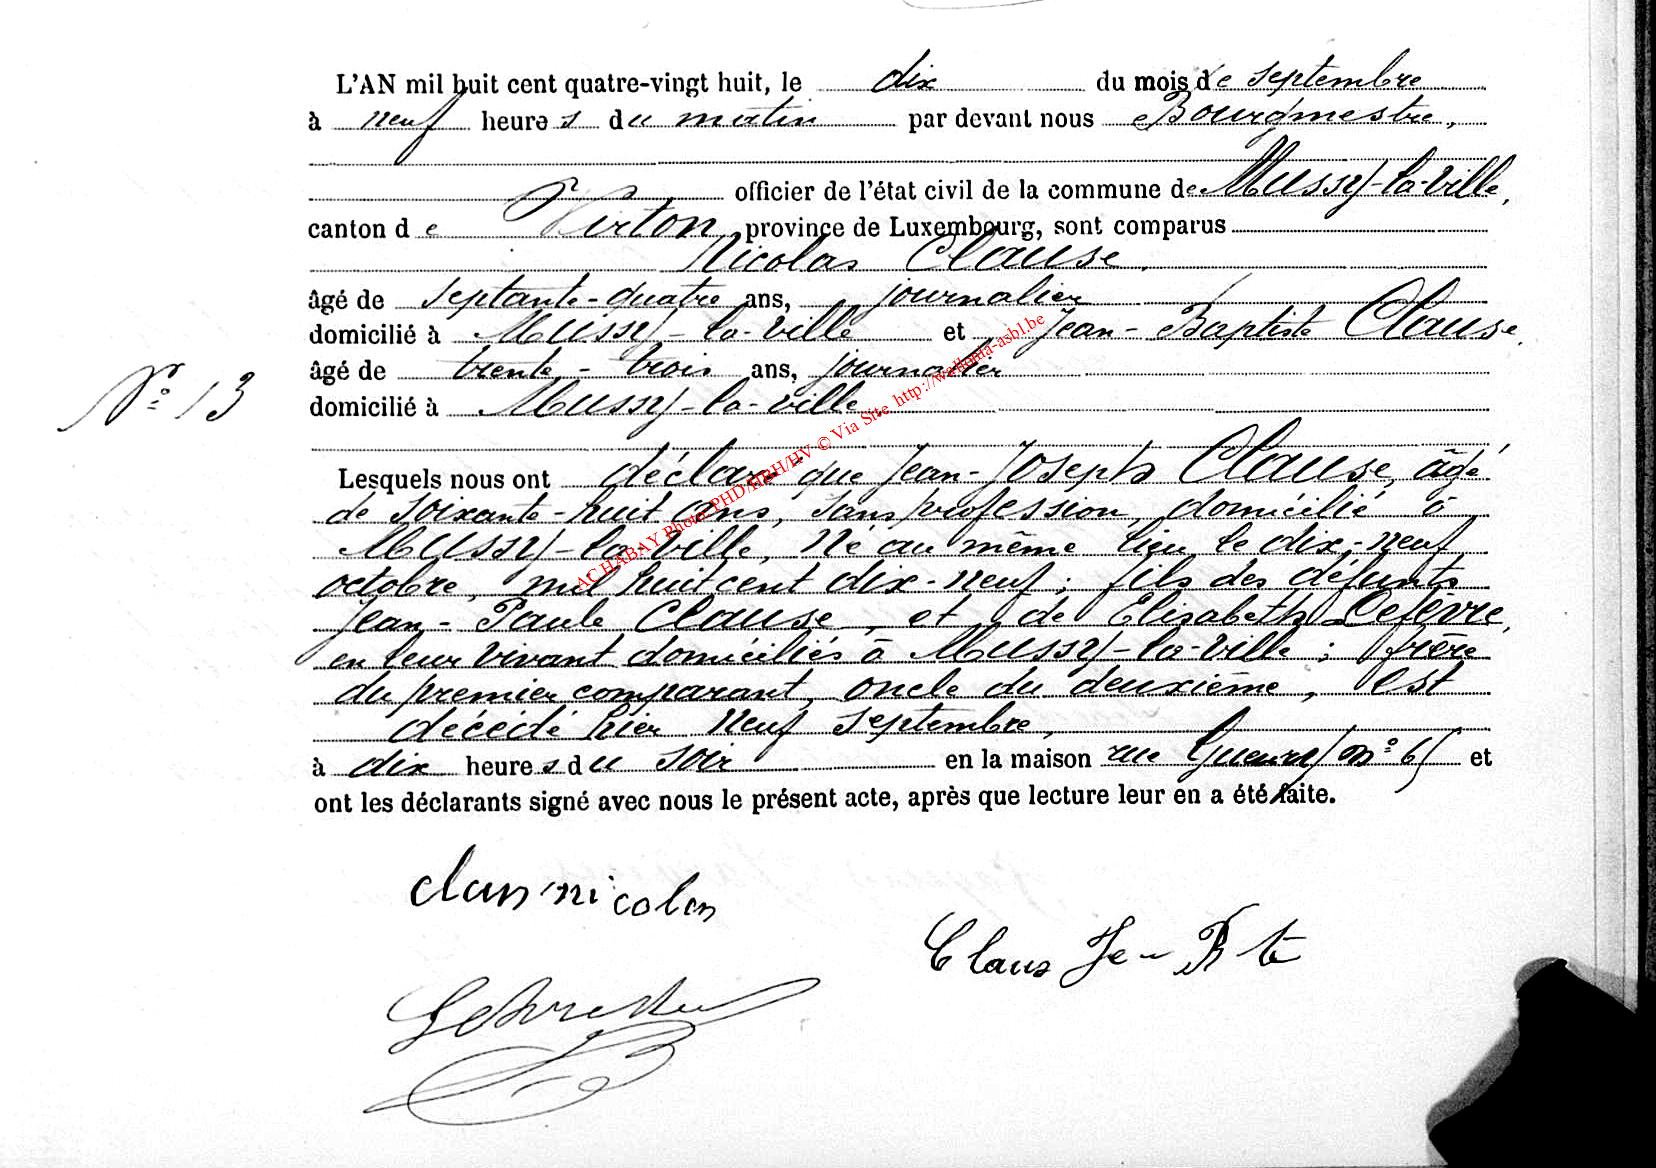 L'AN mil huit cent quatre-vingt huit, le dix du mois de septembre
à neuf heures du matin par devant nous Bourgmestre,
officier de l'état civil de la commune de Mussy-la-ville,
canton de Virton, province de Luxembourg, sont comparus
Nicolas Clause,
âgé de septante-quatre ans, journalier
domicilié à Mussy-la-ville et Jean-Baptiste Clause,
âgé de trente-trois ans, journalier
N° 13
domicilié à Mussy-la-ville,
Lesquels nous ont déclaré que Jean-Joseph Clause, âgé
de soixante-huit ans, sans profession, domicilié à
Mussy-la-ville, né au même lieu le dix-neuf
octobre, mil huit cent dix-neuf; fils des défunts
Jean-Paule Clause, et de Elisabeth Lefèvre,
en leur vivant domiciliés à Mussy-la-ville; frère
du premier comparant, oncle du deuxième, est
décédé hier neuf septembre,
à dix heures du soir en la maison rue n° 65 et
ont les déclarants signé avec nous le présent acte, après que lecture leur en a été faite.
ACHABAY Photo PHD/HBH/HV © Via Site http://wallonia-asbl.be
nicolas
Claus Je- Bte